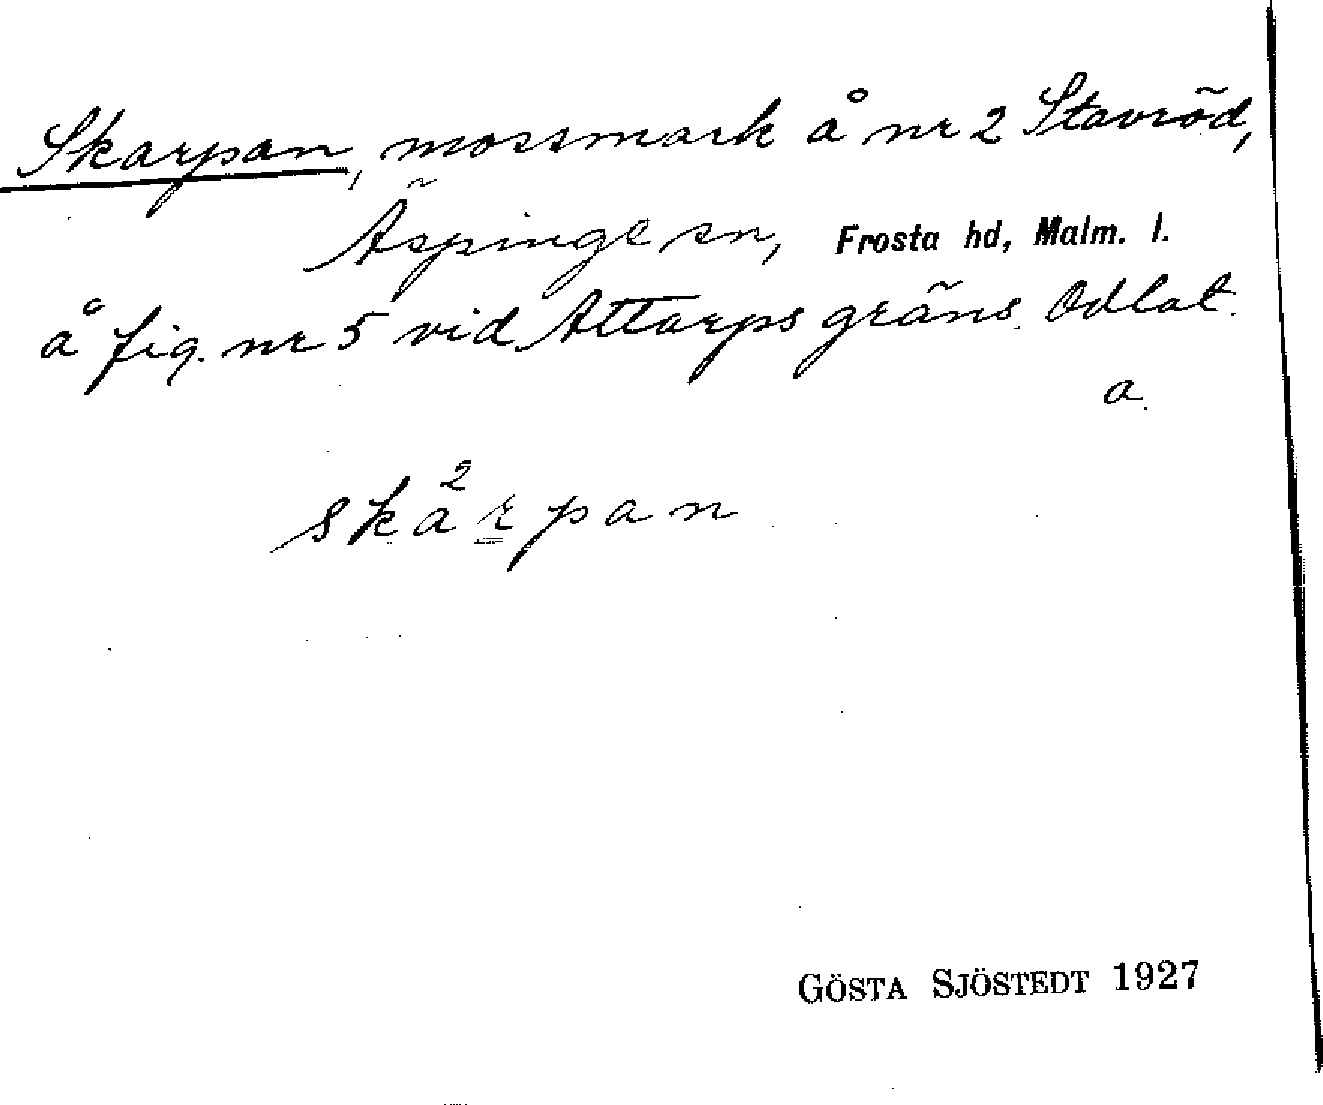 Skarpan, mossmark å nr 2 Stavröd,
Äspinge sn, Frosta hd, Malm. l.
å fig. nr 5 vid Attarps gräns. Odlat.
a.
ska²rpan
GÖSTA SJÖSTEDT 1927